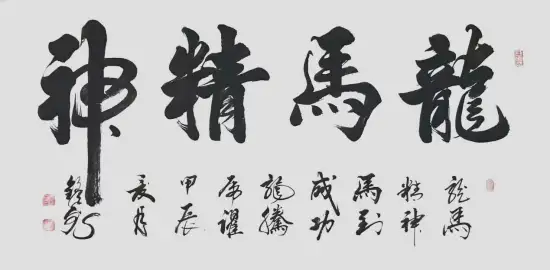 龍馬精神
龍馬
精神
馬到
成功
龍騰
虎躍
甲辰
夏月